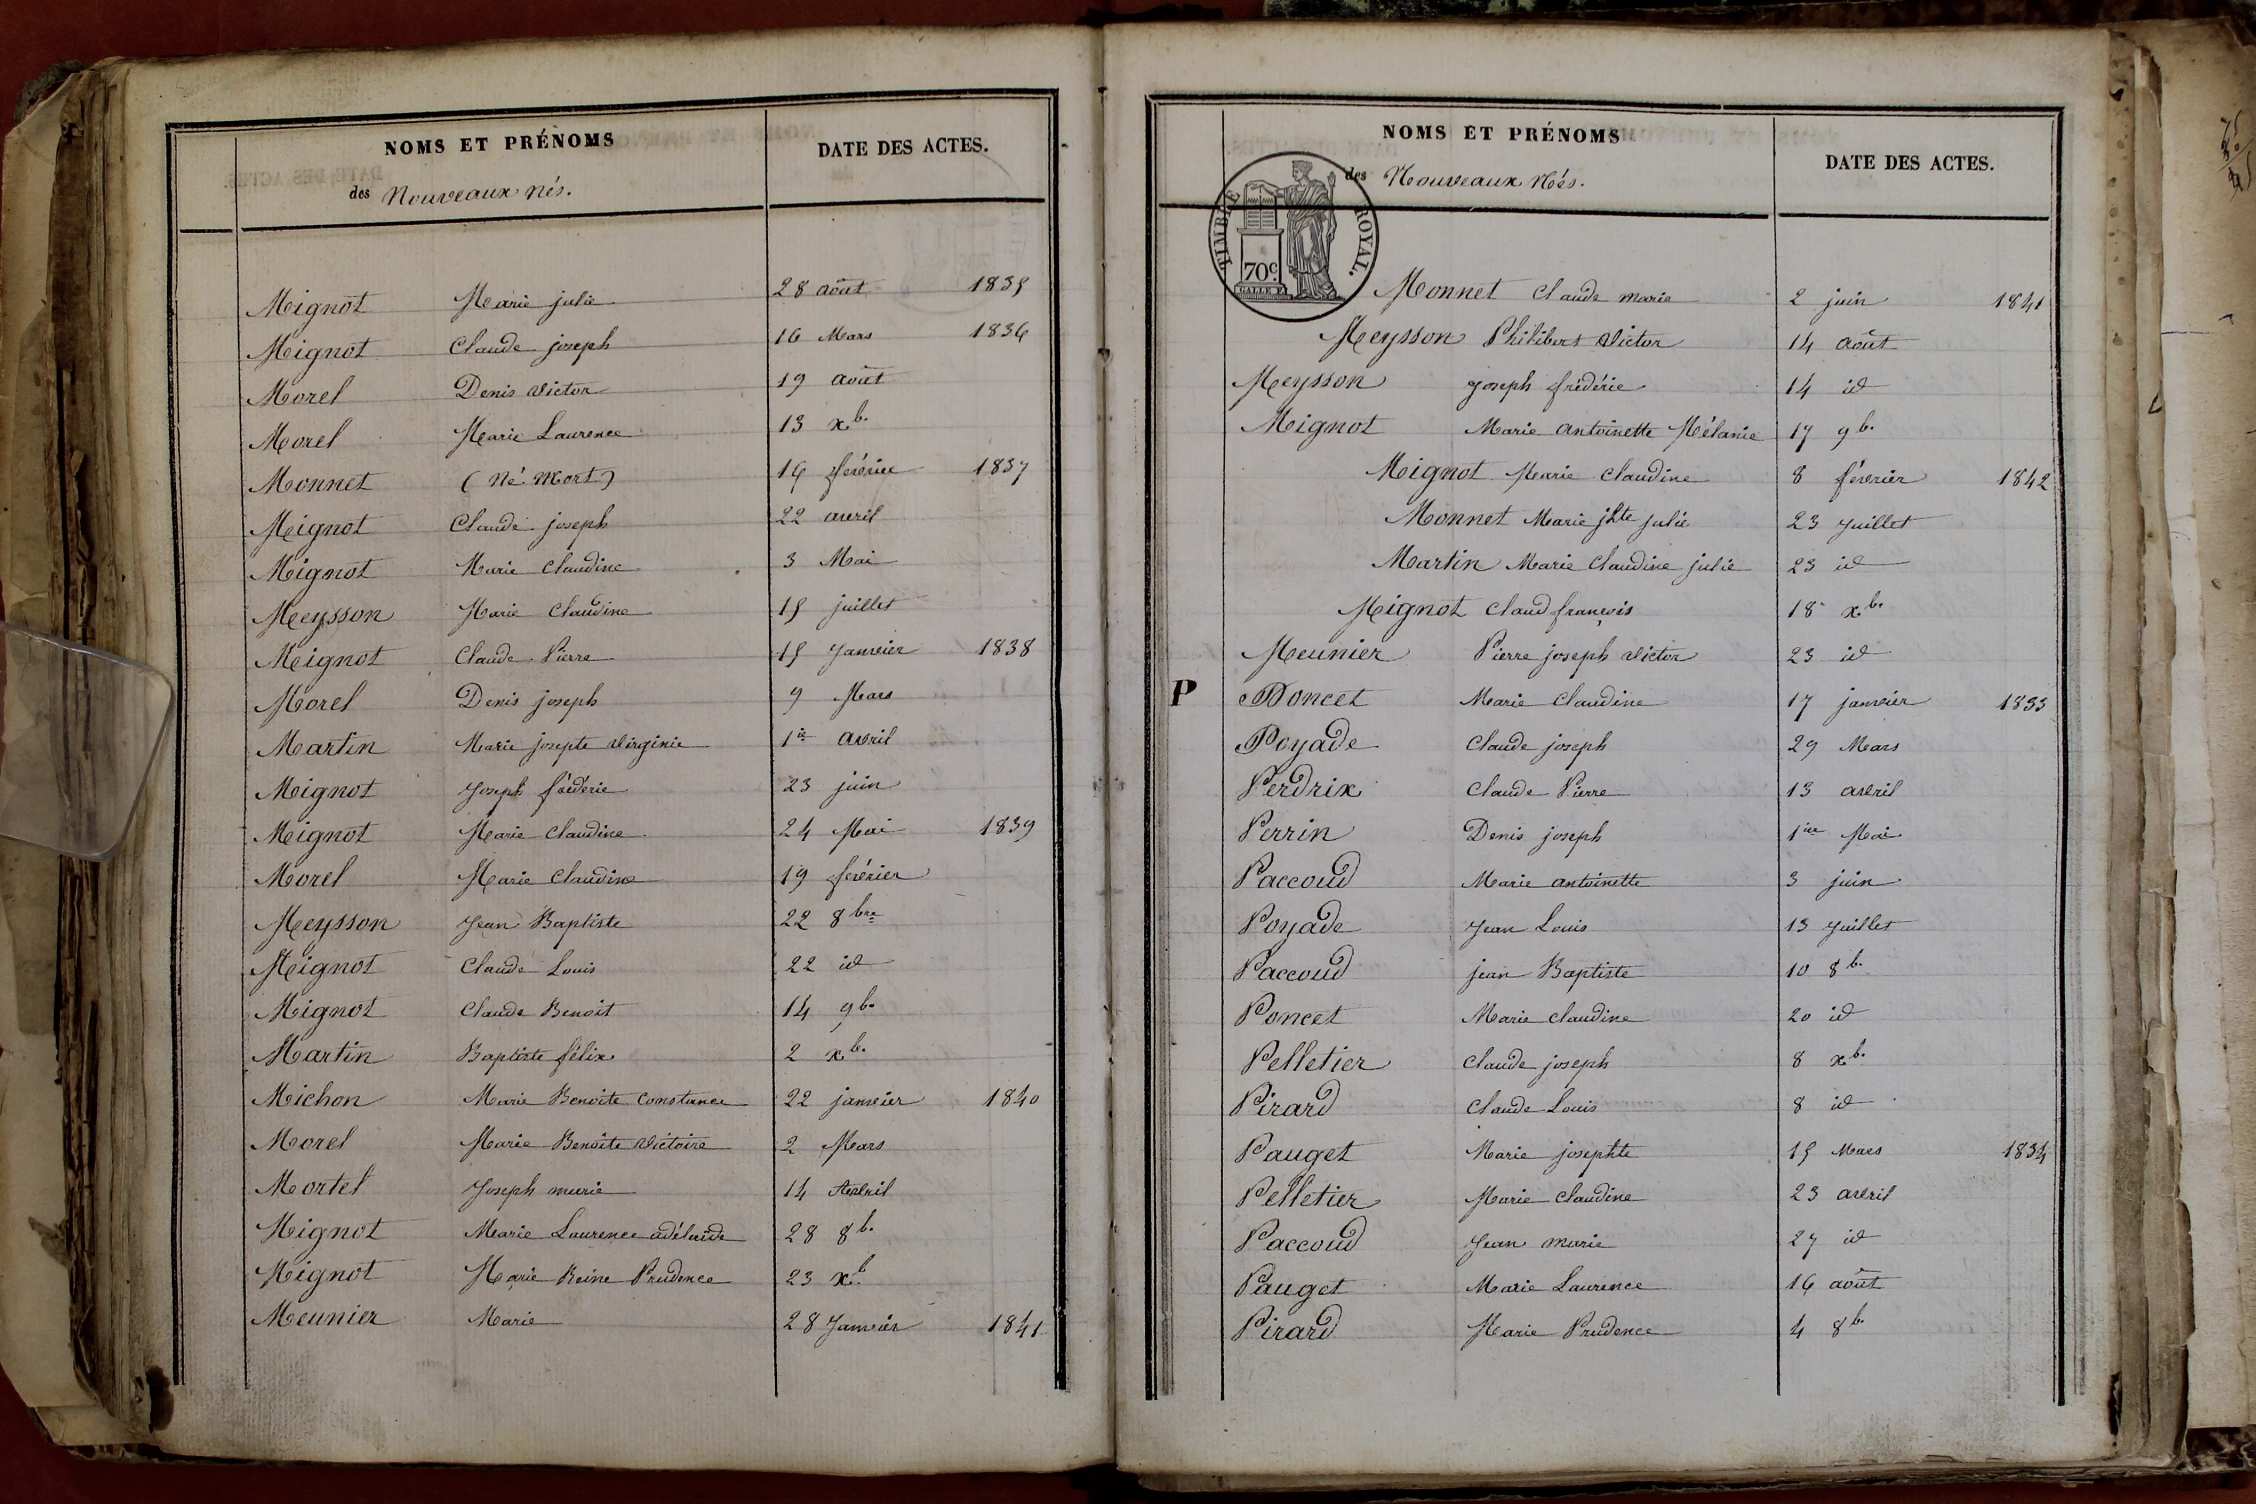 NOMS ET PRÉNOMS DATE DES ACTES.
des Nouveaux nés.
Mignot Marie julie 28 août 1835
Mignot Claude joseph 16 Mars 1836
Morel Denis Victor 19 août
Morel Marie Laurence 13 xb.
Monnet (Né Mort) 16 février 1837
Mignot Claude joseph 22 avril
Mignot Marie Claudine 3 Mai
Meysson Marie Claudine 15 juillet
Mignot Claude Pierre 15 Janvier 1838
Morel Denis joseph 9 Mars
Martin Marie josepte Virginie 1er avril
Mignot Joseph fréderic 23 juin
Mignot Marie Claudine 24 Mai 1839
Morel Marie Claudine 19 février
Meysson Jean Baptiste 22 8bre
Mignot Claude Louis 22 id
Mignot Claude Benoit 14 9b.
Martin Baptiste félix 2 xb.
Michon Marie Benoite Constance 22 janvier 1840
Morel Marie Benoîte Victoire 2 Mars
Mortel Joseph marie 14 Avril
Mignot Marie Laurence adélaide 28 8b.
Mignot Marie Reine Prudence 23 xb
Meunier Marie 28 Janvier 1841
NOMS ET PRÉNOMS DATE DES ACTES.
des Nouveaux Nés.
TIMBRE ROYAL.
70c.
Monnet Claude marie 2 juin 1841
Meysson Philibert Victor 14 août
Meysson joseph frédéric 14 id
Mignot Marie antoinette Mélanie 17 9b.
Mignot Marie Claudine 8 février 1842
Monnet Marie jhte julie 23 Juillet
Martin Marie Claudine julie 23 id
Mignot Claud françois 18 xb.
Meunier Pierre joseph Victor 23 id
P Poncet Marie Claudine 17 janvier 1833
Poyade Claude joseph 29 Mars
Perdrix Claude Pierre 13 avril
Perrin Denis joseph 1ier Mai
Paccoud Marie antoinette 3 juin
Poyade Jean Louis 13 Juillet
Paccoud jean Baptiste 10 8b.
Poncet Marie Claudine 20 id
Pelletier Claude joseph 8 xb.
Pirard Claude Louis 8 id
Pauget Marie josephte 15 Mars 1834
Pelletier Marie Claudine 23 avril
Paccoud Jean marie 27 id
Pauget Marie Laurence 16 août
Pirard Marie Prudence 4 8b.